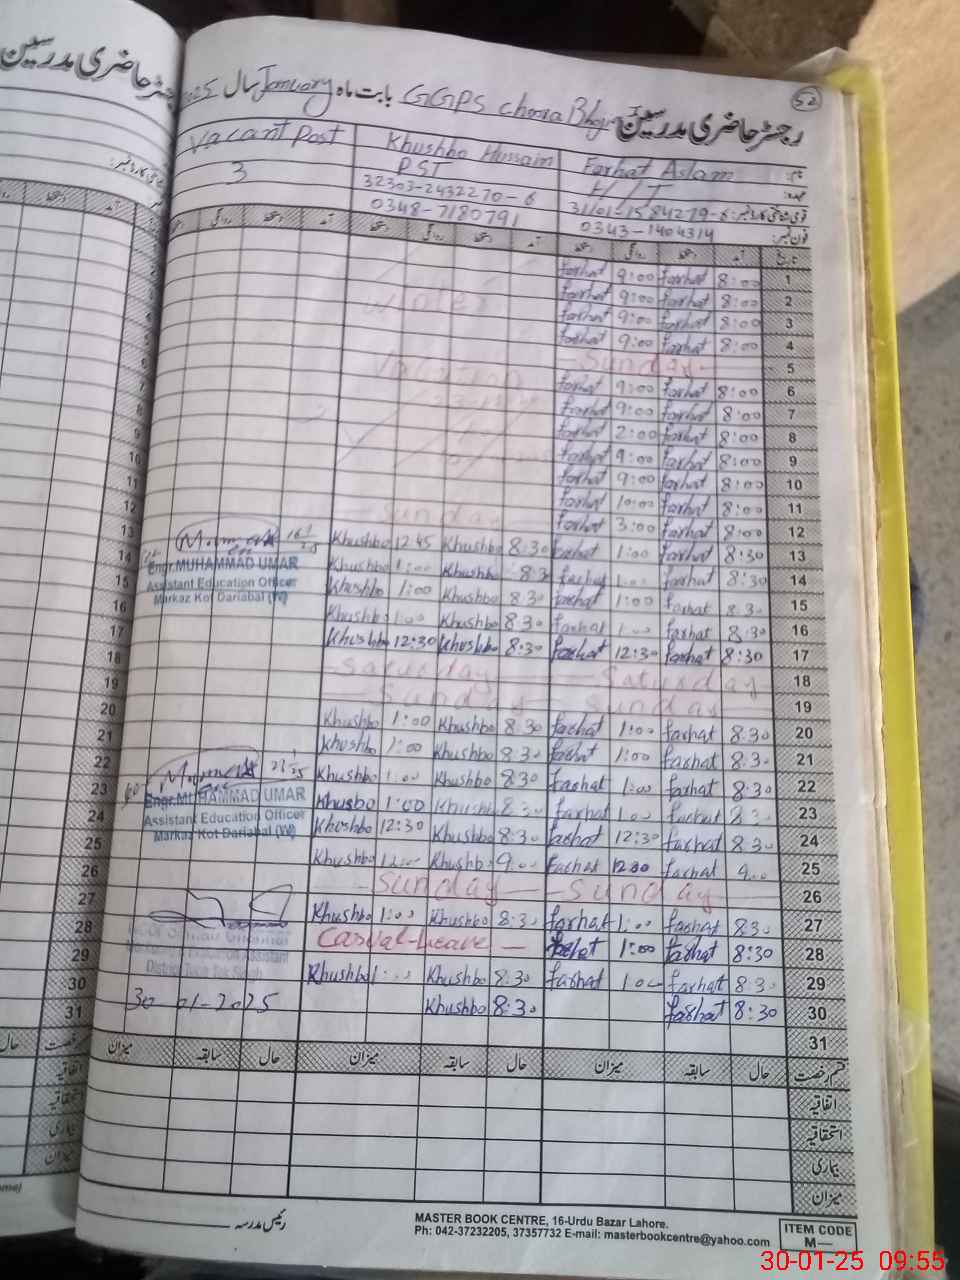 رجسٹر حاضری مدرسین GGPS بابت ماہ January سال 2025
52
نام: Farhat Aslam Khushbo Hussain Vacant Post
عہدہ: H/T PST 3
قومی شناختی کارڈ نمبر: 32303-2432270-6
فون نمبر: 0343-1404314 0348-7180791
تاریخ آمد دستخط روانگی دستخط آمد دستخط روانگی دستخط آمد دستخط روانگی دستخط
1 8:00 Farhat 9:00 Farhat
2 8:00 Farhat 9:00 Farhat winter
3 8:00 Farhat 9:00 Farhat
4 8:00 Farhat 9:00 Farhat
5 Sunday Vacation
6 8:00 Farhat 9:00 Farhat
7 8:00 Farhat 9:00 Farhat
8 8:00 Farhat 2:00 Farhat
9 8:00 Farhat 9:00 Farhat
10 8:00 Farhat 9:00 Farhat
11 8:00 Farhat 10:00 Farhat
12 8:00 Farhat 3:00 Farhat Sunday
13 8:30 Farhat 1:00 Farhat 8:30 Khushbo 12:45 Khushbo
14 8:30 Farhat 1:00 Farhat 8:30 Khushbo 1:00 Khushbo
15 8:30 Farhat 1:00 Farhat 8:30 Khushbo 1:00 Khushbo
16 8:30 Farhat 1:00 Farhat 8:30 Khushbo 1:00 Khushbo
17 8:30 Farhat 12:30 Farhat 8:30 Khushbo 12:30 Khushbo
18 Saturday Saturday
19 Sunday Sunday
20 8:30 Farhat 1:00 Farhat 8:30 Khushbo 1:00 Khushbo
21 8:30 Farhat 1:00 Farhat 8:30 Khushbo 1:00 Khushbo
22 8:30 Farhat 1:00 Farhat 8:30 Khushbo 1:00 Khushbo
23 8:30 Farhat 1:00 Farhat 8:30 Khushbo 1:00 Khusbo
24 8:30 Farhat 12:30 Farhat 8:30 Khushbo 12:30 Khushbo
25 9:00 Farhat 12:30 Farhat 9:00 Khushbo 12:00 Khushbo
26 Sunday Sunday
27 8:30 Farhat 1:00 Farhat 8:30 Khushbo 1:00 Khushbo
28 8:30 Farhat 1:00 Farhat Casual-Leave
29 8:30 Farhat 1:00 Farhat 8:30 Khushbo 1:00 Khushbo
30 8:30 Farhat 8:30 Khushbo
31
Engr.MUHAMMAD UMAR
Assistant Education Officer
Markaz Kot Dariabal (W)
Engr.MUHAMMAD UMAR
Assistant Education Officer
Markaz Kot Dariabal (W)
30-01-2025
قسم رخصت حال سابقہ میزان حال سابقہ میزان حال سابقہ میزان
اتفاقیہ
استحقاقیہ
بیماری
میزان
رئیس مدرسہ
MASTER BOOK CENTRE, 16-Urdu Bazar Lahore.
Ph: 042-37232205, 37357732 E-mail: masterbookcentre@yahoo.com
ITEM CODE
M—
30-01-25 09:55